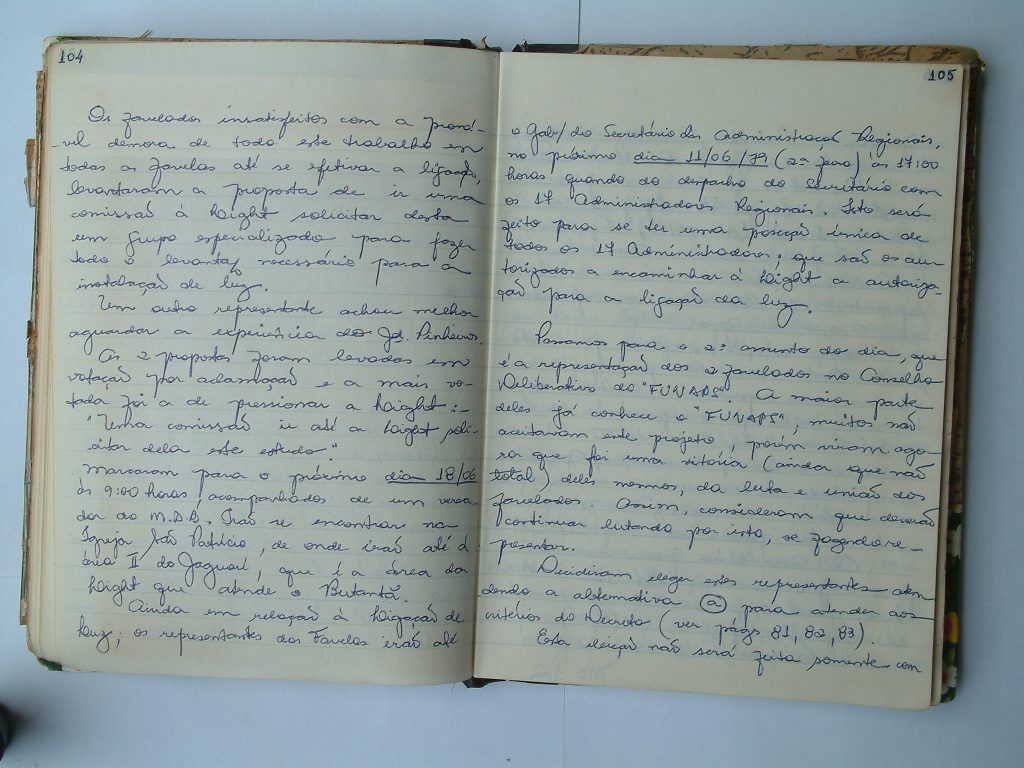 104
Os favelados insatisfeitos com a prová-
-vel demora de todo este trabalho em
todas as favelas até se efetivar a ligação,
levantaram a proposta de ir uma
comissão à Light solicitar desta
um grupo especializado para fazer
todo o levantº necessário para a
instalação de luz.
Um outro representante achou melhor
aguardar a experiência do Jd. Pinheiros.
As 2 propostas foram levadas em
votação por aclamação e a mais vo-
tada foi a de pressionar a Light:-
"Uma comissão ir até a Light soli-
citar dela este estudo."
Marcaram para o próximo dia 18/06
às 9:00 horas, acompanhados de um verea
dor do M.D.B. Irão se encontrar na
Igreja São Patrício, de onde irão até à
área II do Jaguaré, que é a área da
Light que atende o Butantã.
Ainda em relação à Ligação de
Luz; os representantes das Favelas irão até
105
o Gab/ do Secretário das Administraçoẽs Regionais,
no próximo dia 11/06/79 (2ª feira) às 17:00
horas quando do despacho do Secretário com
os 17 Administradores Regionais. Isto será
feito para se ter uma posição única de
todos os 17 Administradores; que são os au-
torizados a encaminhar à Light a autoriza-
ção para a ligação da luz.
Passamos para o 2º assunto do dia, que
é a representação dos 2 favelados no Conselho
Deliberativo do "FUNAPS". A maior parte
deles já conhece o "FUNAPS", muitos não
aceitavam este projeto, porém viram ago-
ra que foi uma vitória (ainda que não
total) deles mesmos, da luta e união dos
favelados. Assim, consideram que deverão
continuar lutando por isto, se fazendo re-
presentar.
Decidiram eleger estes representantes aten
dendo a alternativa (a) para atender aos
critérios do Decreto (ver págs 81, 82, 83).
Esta eleição não será feita somente com